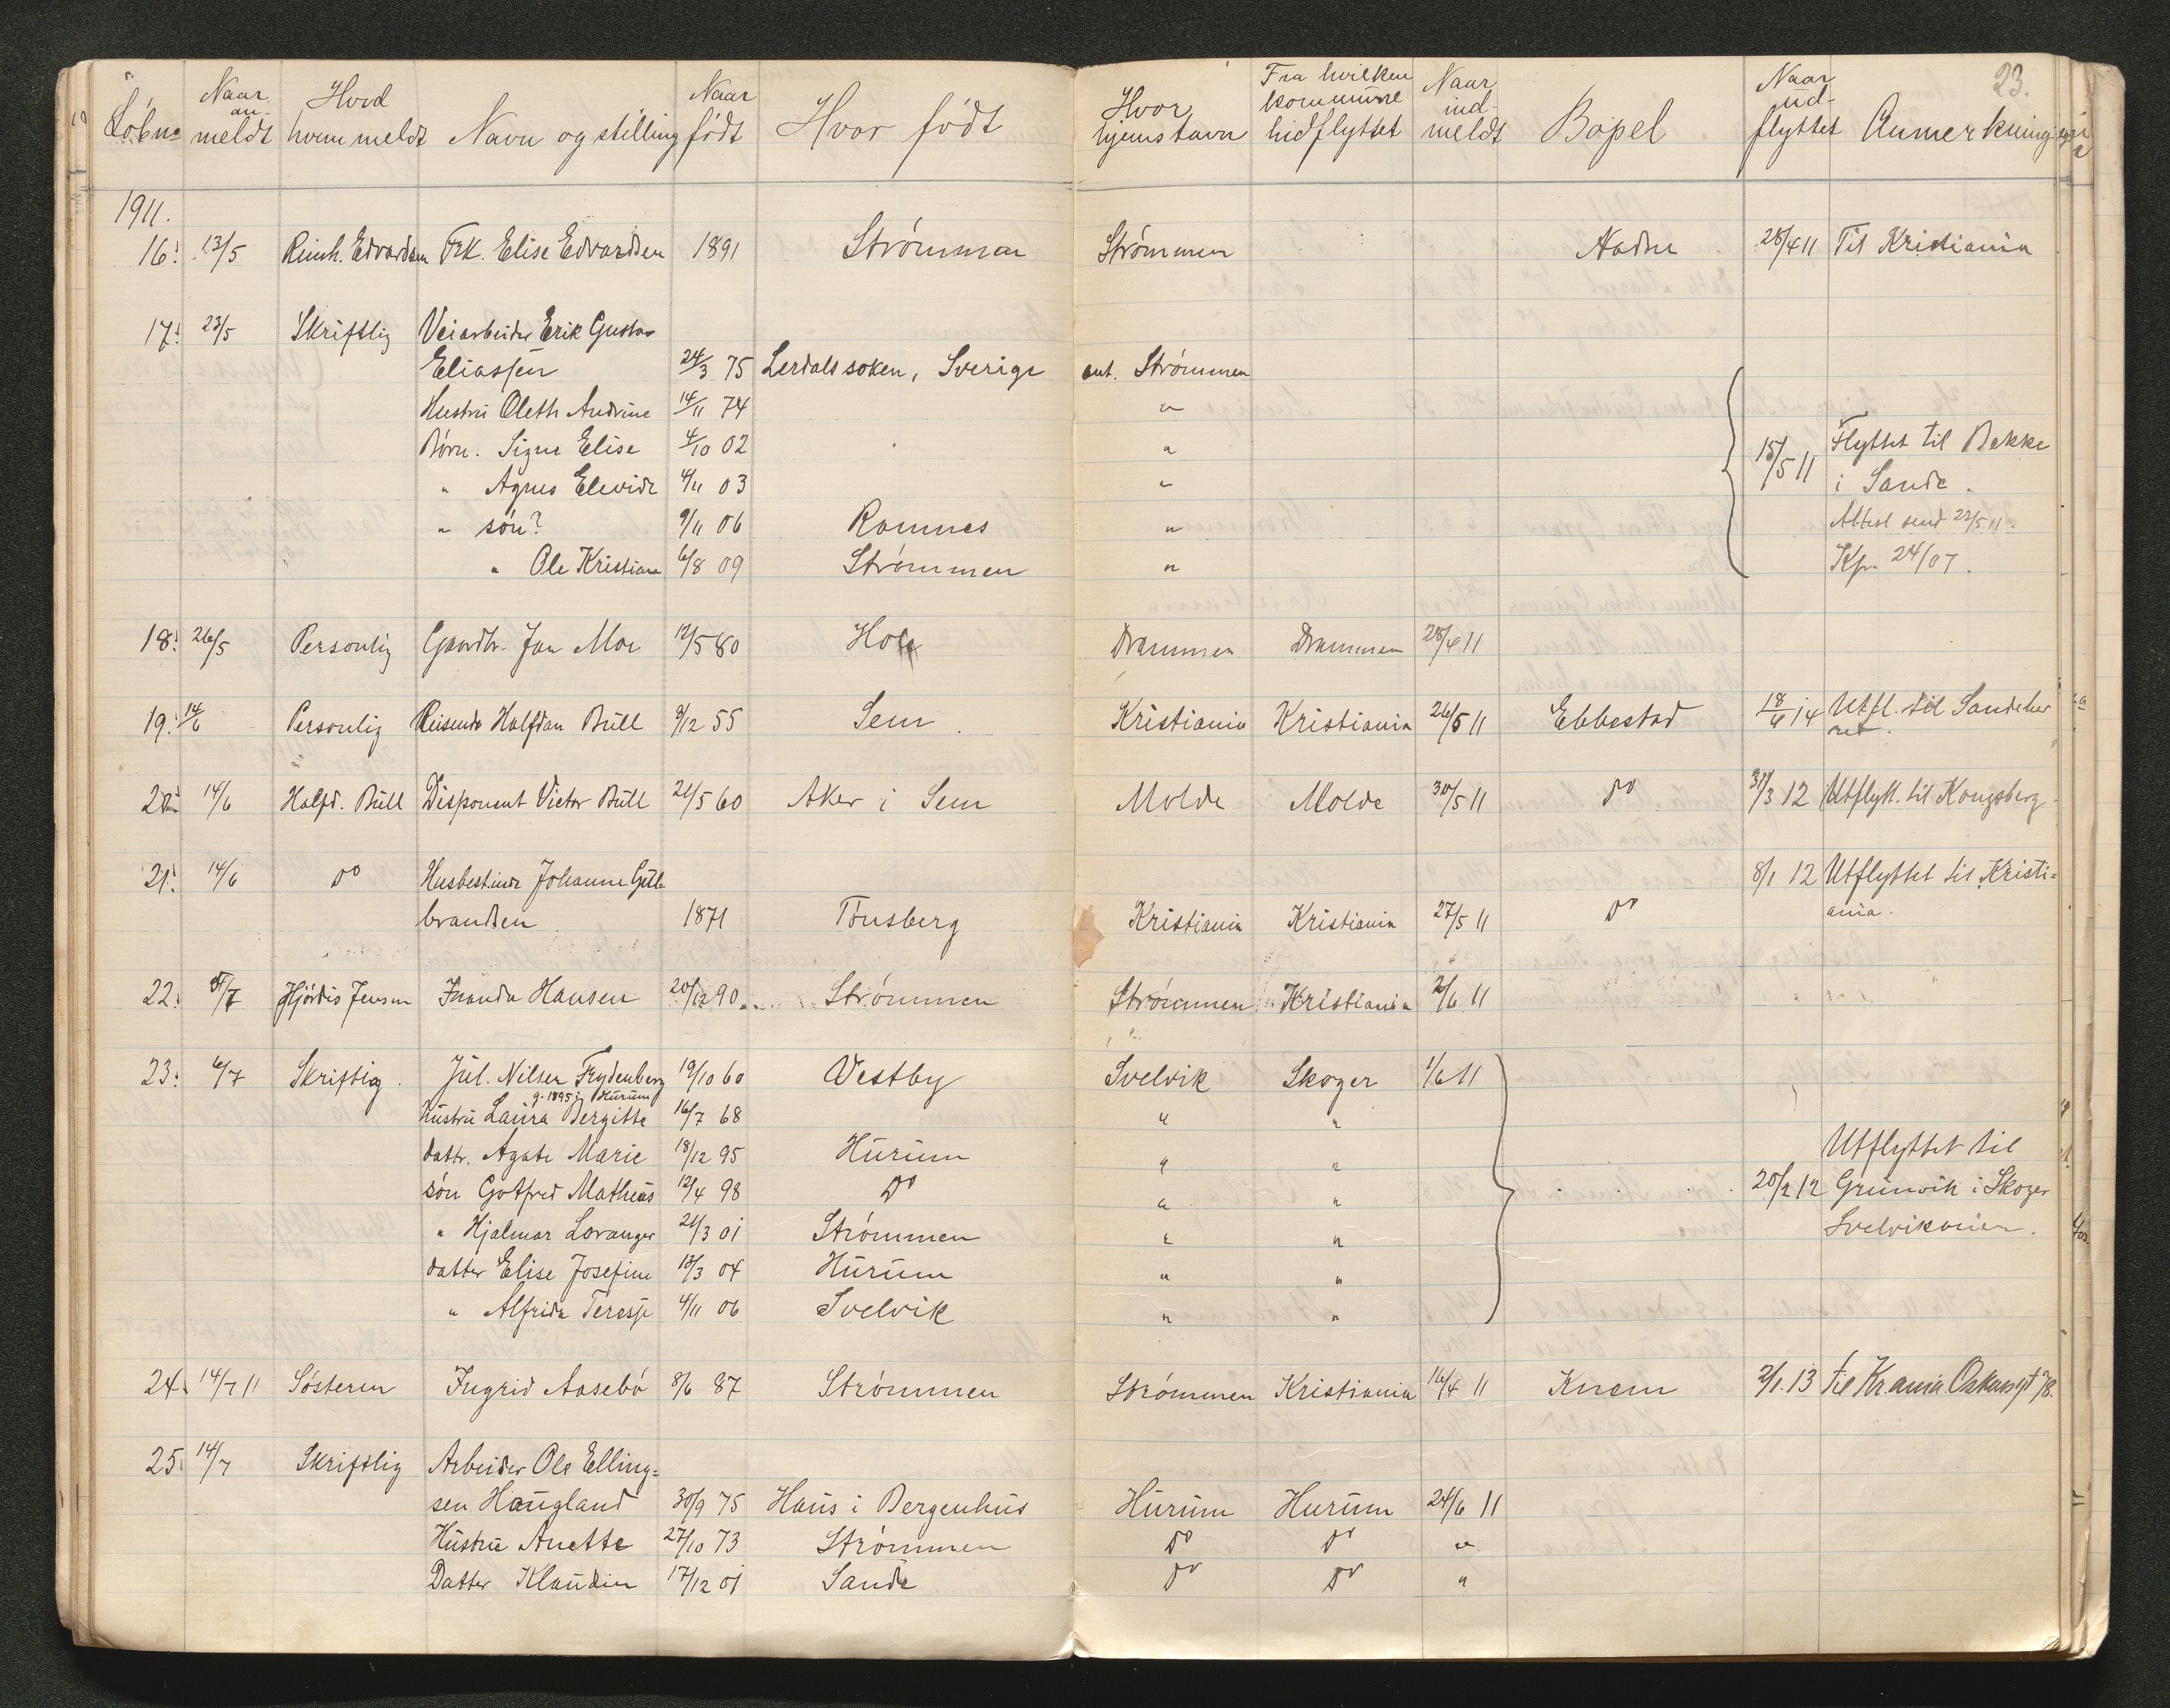 23.
Løbne Naar an-meldt Hvad hvem meldt Navn og stilling Naar født Hvor født Hvor hjemstavn Fra hvilken kommune hidflyttet Naar ind-meldt Bopel Naar ud-flyttet Anmerkninger
1911.
16. 13/5 Reinh. Edvardsen Frk. Elise Edvardsen 1891 Strømmen Strømmen 28/4 11 Til Kristiania
17. 23/5 Skriftlig Veiarbeider Erik Gustav
Eliassen 24/3 75 Lerdals soken, Sverige ant. Strømmen
Hustru Oleth Andrine 14/11 74 "
Børn. Signe Elise 4/10 02 "
" Agnes Elevide 4/11 03 "
" søn? 9/11 06 Ramnes "
" Ole Kristian 6/8 09 Strømmen "
15/5 11 Flyttet til Bekke
i Sande.
Attest send 22/5 11.
Kp. 24/07.
18. 26/5 Personlig Gaardbr. Jan Moe 12/5 80 Hole Drammen Drammen 28/4 11
19. 14/6 Personlig Reisende Halfdan Bull 3/12 55 Sem. Kristiania Kristiania 26/5 11 Ebbestad 18/4 14 Utfl. til Sandeher
ret.
20. 14/6 Halfd. Bull Disponent Victor Bull 21/5 60 Aker i Sem Molde Molde 30/5 11 Do 31/3 12 Utflytt. til Kongsberg
21. 14/6 Do Husbest.inde Johanne Gul- 8/1 12 Utflyttet til Kristi=
brandsen 1871 Tønsberg Kristiania Kristiania 27/5 11 Do ania.
22. 5/7 Hjørdis Jensen Hansen 20/12 90 Strømmen Strømmen Kristiania 2/6 11
23. 6/7 Skriftlig. Jul. Nilsen Frydenberg 19/10 60 Vestby Svelvik Skoger 1/6 11
g. 1895 i Hurum
Hustru Laura Bergitte 16/7 68 " "
datt. Agate Marie 18/12 95 Hurum " "
søn Gotfred Mathæus 12/4 98 Do " "
" Hjalmar Lovanger 21/3 01 Strømmen " "
datter Elise Josefine 13/3 04 Hurum " "
" Alfrida Teresje 4/11 06 Svelvik " "
Utflyttet til
20/2 12 Grunvik i Skoger
Svelvikveien.
24. 14/7 11 Søsteren Ingrid Aasebø 8/6 87 Strømmen Strømmen Kristiania 16/4 11 Knem 2/1. 13 til Kr.ania Oskarsgt 78.
25. 14/7 Skriftlig Arbeider Ole Elling=
sen Haugland 30/9 75 Haus i Bergenhus Hurum Hurum 24/6 11
Hustru Anette 27/10 73 Strømmen Do Do "
Datter Klaudia 17/12 01 Sande Do Do "